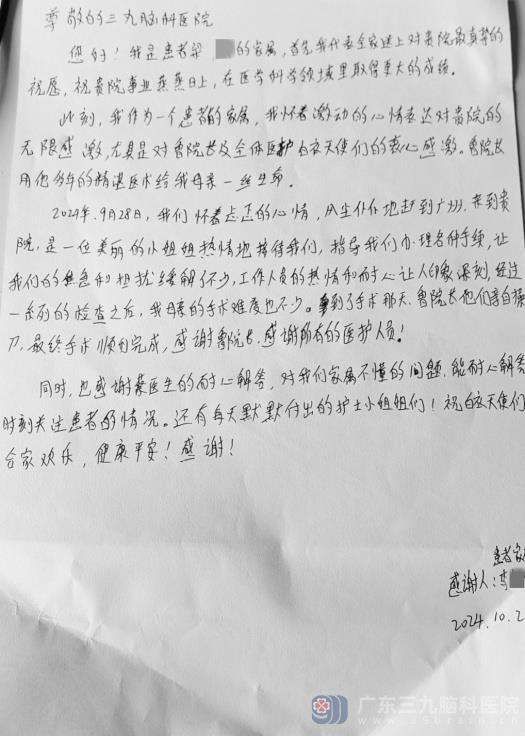 尊敬的三九脑科医院
您好！我是患者梁 的家属，首先我代表全家送上对贵院最真挚的
祝愿，祝贵院事业蒸蒸日上，在医学科学领域里取得更大的成绩。
此刻，我作为一个患者的家属，我怀着激动的心情表达对贵院的
无限感激，尤其是对鲁院长及全体医护白衣天使们的衷心感激。鲁院长
用他多年的精湛医术给我母亲一丝生命．
2024年.9月28日，我们怀着忐忑的心情，风尘仆仆地赶到广州．来到贵
院，是一位美丽的小姐姐热情地接待我们，指导我们办理各种手续，让
我们的焦急和担忧缓解了不少，工作人员的热情和耐心让人印象深刻．经过
一系列的检查之后，我母亲的手术难度也不少。到了手术那天．鲁院长他们亲自操
刀．最终手术顺利完成，感谢鲁院长．感谢所有的医护人员！
同时，也感谢蔡医生的耐心解答，对我们家属不懂的问题．能耐心解答
时刻关注患者的情况。还有每天默默付出的护士小姐姐们！祝白衣天使们
合家欢乐，健康平安！感谢！
患者家
感谢人：李
2024.10.2
广东三九脑科医院
www.39brain.cn